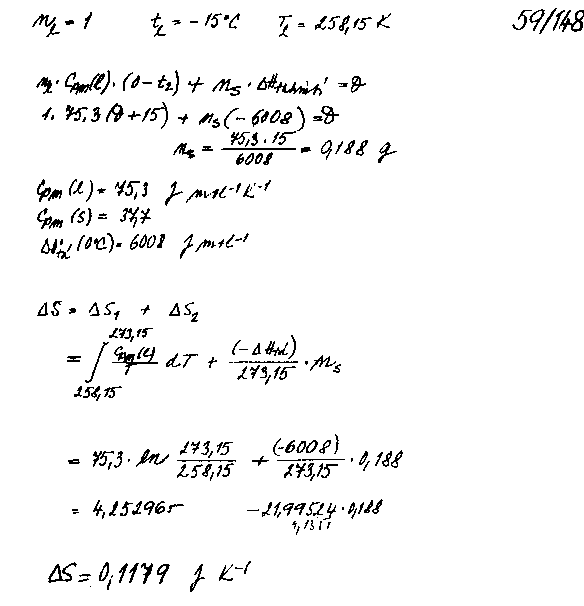 n_l = 1 t_l = -15°C T_l = 258,15 K 59/148
n_l · C_pm(l) · (0 - t_2) + n_s · ΔH = 0
1. 75,3 (0 + 15) + n_s (-6008) = 0
n_s = 75,3 · 15 / 6008 = 0,188 g
C_pm (l) = 75,3 J mol⁻¹ K⁻¹
C_pm (s) = 37,7
(0°C) = 6008 J mol⁻¹
ΔS = ΔS_1 + ΔS_2
= ∫_{258,15}^{273,15} C_pm(l)/T dT + (-ΔH_tl)/273,15 · n_s
= 75,3 · ln 273,15/258,15 + (-6008)/273,15 · 0,188
= 4,252965 -21,99524 · 0,188
ΔS = 0,1179 J K⁻¹